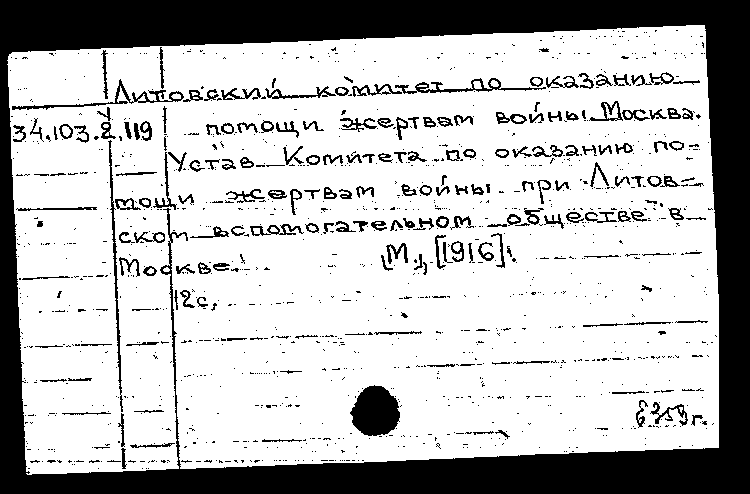 Литовский комитет по оказанию
34.103.2.119 помощи жертвам войны. Москва.
Устав Комитета по оказанию по-
мощи жертвам войны при Литов-
ском вспомогательном обществе в
Москве. М., [1916].
12с.